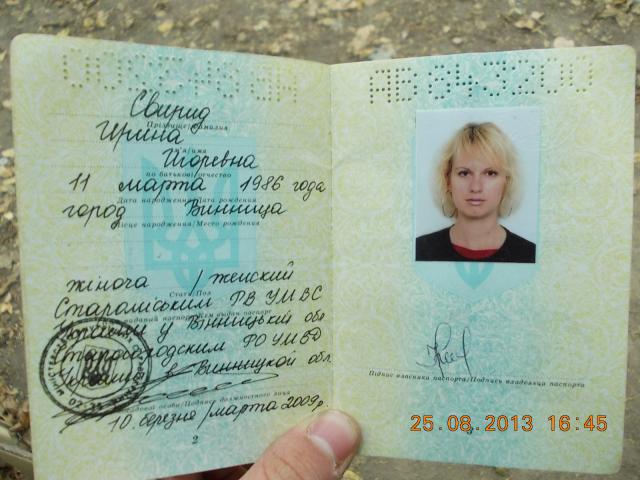 Свирид
Прізвище/Фамилия
Ирина
Ім'я/имя
Игоревна
по батькові/отчество
11 марта 1986 года
Дата народження/Дата рождения
город Винница
Місце народження/Место рождения
жіноча / женский
Стать/Пол
Староміським РВ УМВС
України у Вінницькій обл
Старогородским РО УМВД
Украины в Винницкой обл
10 березня/марта 2009 р
2
АВ 843200
Підпис власника паспорта/Подпись владельца паспорта
3
25.08.2013 16:45